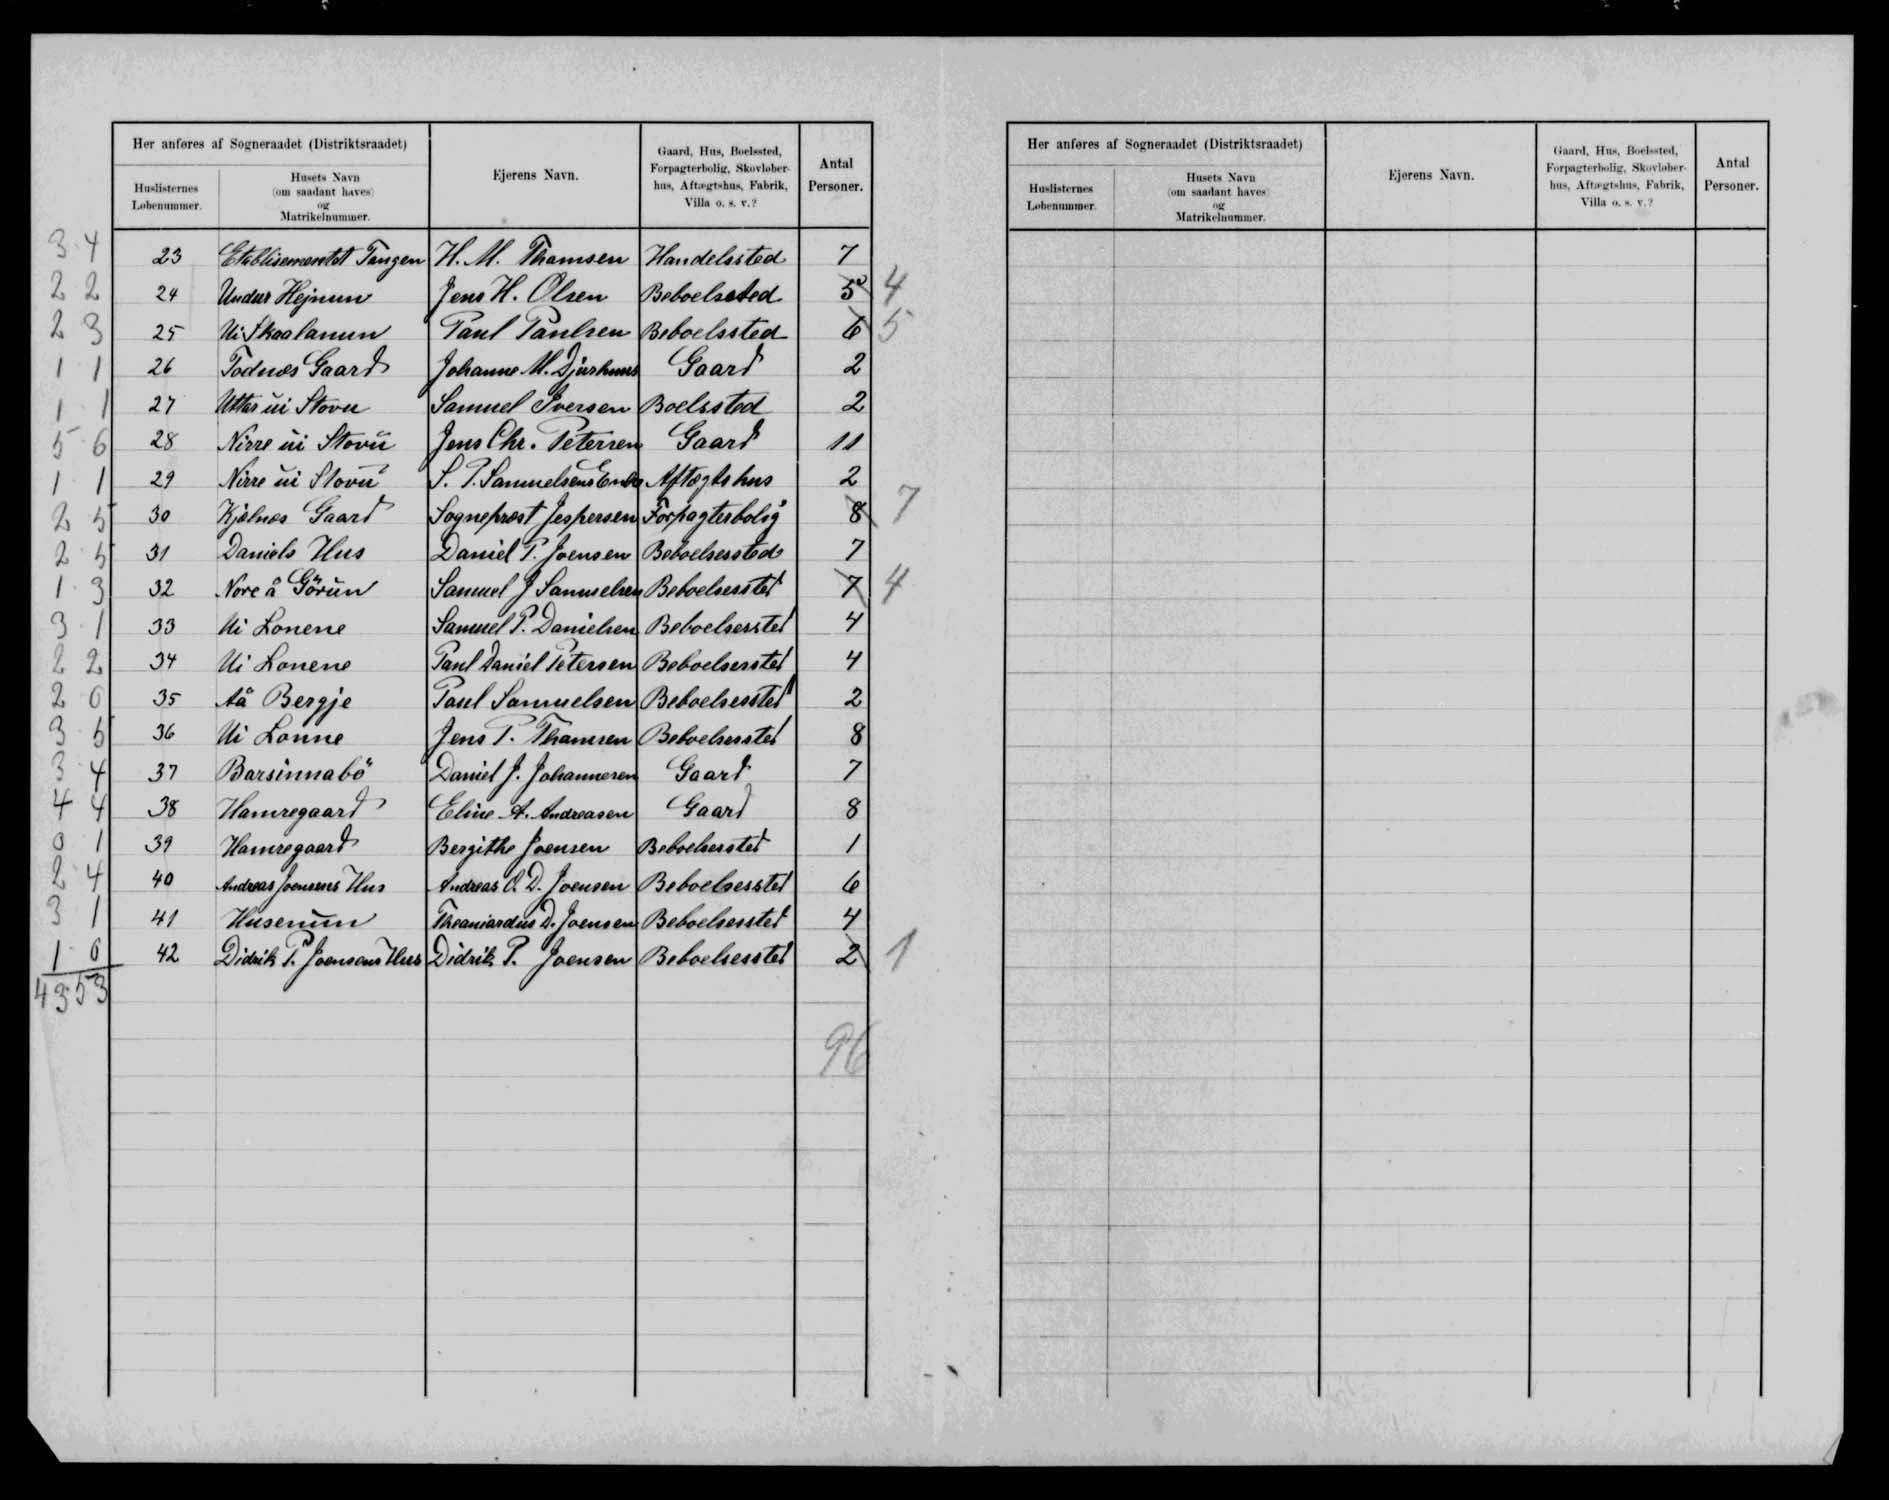 Her anføres af Sogneraadet (Distriktsraadet)
Huslisternes Løbenummer.
Husets Navn (om saadant haves) og Matrikelnummer.
Ejerens Navn.
Gaard, Hus, Boelssted, Forpagterbolig, Skovløberhus, Aftægtshus, Fabrik, Villa o. s. v.?
Antal Personer.
3 4 23 Etablisementet Tangen H. M. Thomsen Handelssted 7
2 2 24 Undur Hejnun Jens H. Olsen Beboelssted 5 4
2 3 25 Ui Skaalanun Paul Paulsen Beboelssted 6 5
1 1 26 Todnæs Gaard Johanne M. Djurhuus Gaard 2
1 1 27 Uttar ui Stovu Samuel Iversen Boelssted 2
5 6 28 Nirre ui Stovu Jens Chr. Petersen Gaard 11
1 1 29 Nirre ui Stovu S. P. Samuelsens Enke Aftægtshus 2
2 5 30 Kjølnæs Gaard Sognepræst Jespersen Forpagterbolig 8 7
2 5 31 Daniels Hus Daniel P. Joensen Beboelsessted 7
1 3 32 Nore å Görun Samuel J Samuelsen Beboelsessted 7 4
3 1 33 Ui Lonene Samuel P. Danielsen Beboelsessted 4
2 2 34 Ui Lonene Paul Daniel Petersen Beboelsessted 4
2 0 35 Aå Bergje Paul Samuelsen Beboelsessted 2
3 5 36 Ui Lonne Jens P. Thomsen Beboelsessted 8
3 4 37 Barsinnabö Daniel J. Johannesen Gaard 7
4 4 38 Hamregaard Eline A. Andreasen Gaard 8
0 1 39 Hamregaard Bergithe Joensen Beboelsessted 1
2 4 40 Andreas Joensens Hus Andreas O. D. Joensen Beboelsessted 6
3 1 41 Husenun D. Joensen Beboelsessted 4
1 0 42 Didrik P. Joensens Hus Didrik P. Joensen Beboelsessted 2 1
43 53
96
Her anføres af Sogneraadet (Distriktsraadet)
Huslisternes Løbenummer.
Husets Navn (om saadant haves) og Matrikelnummer.
Ejerens Navn.
Gaard, Hus, Boelssted, Forpagterbolig, Skovløberhus, Aftægtshus, Fabrik, Villa o. s. v.?
Antal Personer.